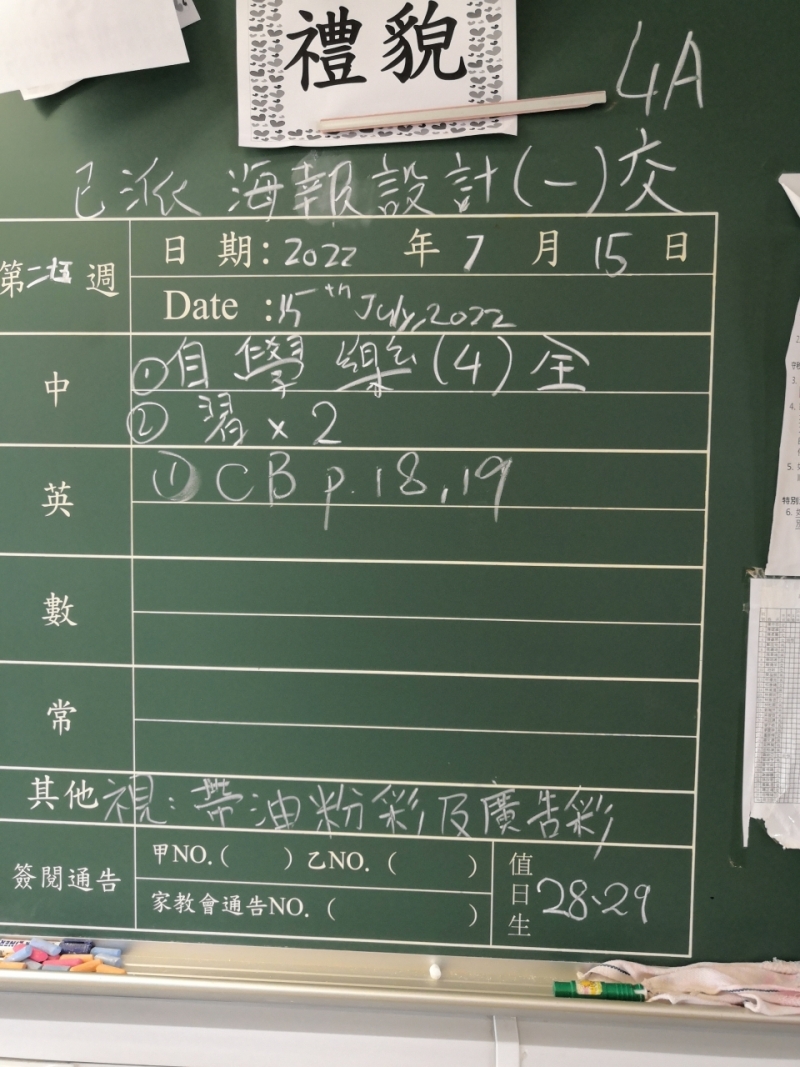 禮貌
4A
已派 海報設計(一)交
第二五週
日期：2022 年 7 月 15 日
Date : 15th July, 2022
中
① 自學樂(4)全
② 習 x 2
英
① CB p.18,19
數
常
其他 視：帶油粉彩及廣告彩
簽閱通告
甲NO.( ) 乙NO. ( )
家教會通告NO. ( )
值日生 28、29